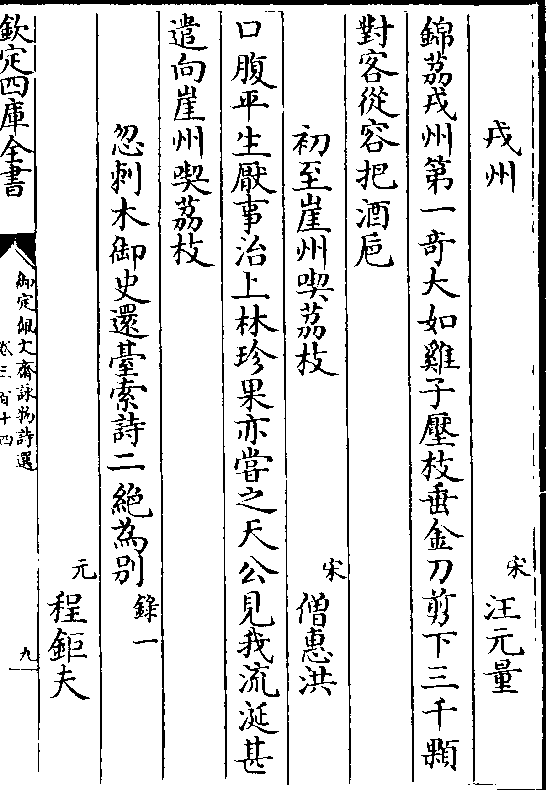 戎州　宋　汪元量
錦荔戎州第一奇大如雞子壓枝垂金刀剪下三千顆
對客從容把酒巵
初至崖州喫荔枝　宋　僧惠洪
口腹平生厭事治上林珍果亦嘗之天公見我流涎甚
遣向崖州喫荔枝
忽刺木御史還臺索詩二絶為别　錄一
元　程鉅夫
欽定四庫全書　御定佩文齋詠物詩選　卷三百十四　九